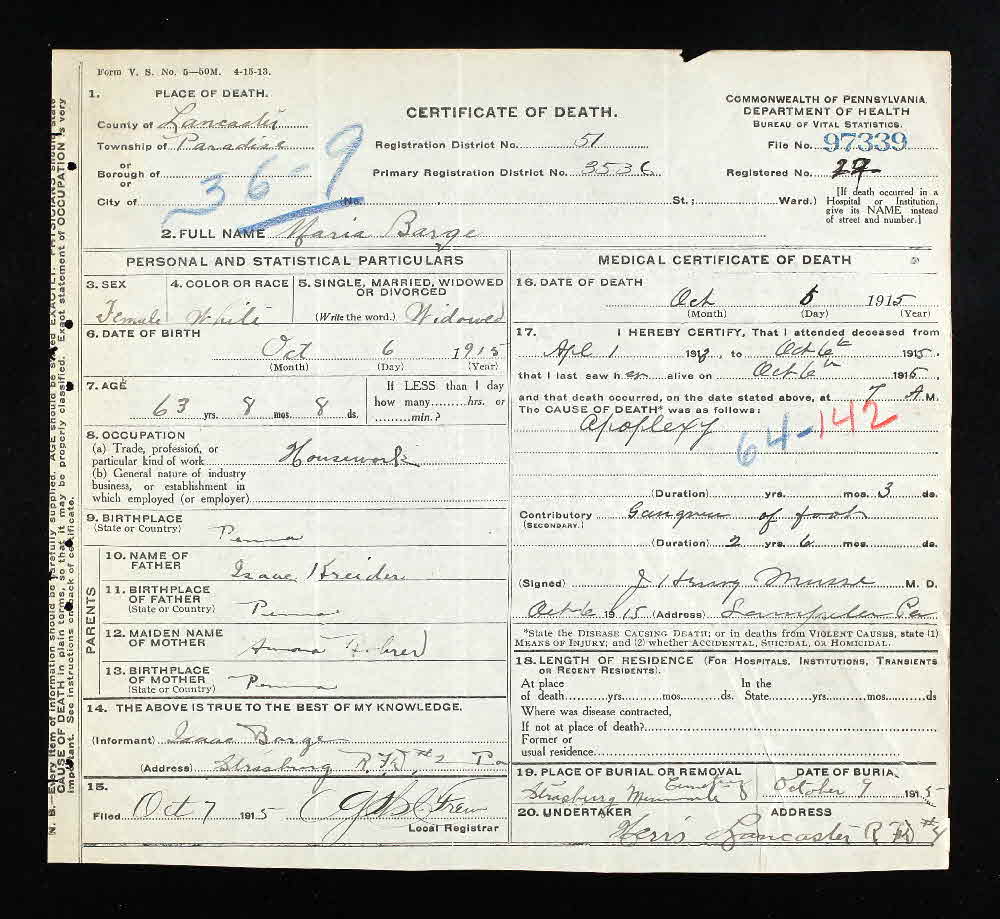 Form V. S. No. 5—50M. 4-15-13.
1. PLACE OF DEATH.
County of Lancaster
Township of Paradise
or
Borough of
or
City of
36-9
CERTIFICATE OF DEATH.
Registration District No. 51
Primary Registration District No. 3536
(No. , St.; Ward.)
COMMONWEALTH OF PENNSYLVANIA
DEPARTMENT OF HEALTH
BUREAU OF VITAL STATISTICS.
File No. 97339
Registered No. 27
[If death occurred in a Hospital or Institution, give its NAME instead of street and number.]
2. FULL NAME Maria Barge
PERSONAL AND STATISTICAL PARTICULARS
3. SEX
Female
4. COLOR OR RACE
White
5. SINGLE, MARRIED, WIDOWED OR DIVORCED
(Write the word.) Widowed
6. DATE OF BIRTH
Oct 6 1915
(Month) (Day) (Year)
7. AGE
63 yrs. 8 mos. 8 ds.
If LESS than 1 day
how many hrs. or
min.?
8. OCCUPATION
(a) Trade, profession, or
particular kind of work Housework
(b) General nature of industry
business, or establishment in
which employed (or employer)
9. BIRTHPLACE
(State or Country)
Penna
PARENTS
10. NAME OF FATHER
Isaac Kreider
11. BIRTHPLACE OF FATHER
(State or Country)
Penna
12. MAIDEN NAME OF MOTHER
13. BIRTHPLACE OF MOTHER
(State or Country)
Penna
14. THE ABOVE IS TRUE TO THE BEST OF MY KNOWLEDGE.
(Informant) Isaac Barge
(Address) Strasburg R.F.D. #2 Pa
15.
Filed Oct 7 1915
Local Registrar
MEDICAL CERTIFICATE OF DEATH
16. DATE OF DEATH
Oct 6 1915
(Month) (Day) (Year)
17. I HEREBY CERTIFY, That I attended deceased from
Apl 1 1913, to Oct 6th 1915.
that I last saw her alive on Oct 6th 1915,
and that death occurred, on the date stated above, at 7 A.M.
The CAUSE OF DEATH* was as follows:
Apoplexy
64-142
(Duration) yrs. mos. 3 ds.
Contributory Gangrene of foot
(SECONDARY.)
(Duration) 2 yrs. 6 mos. ds.
(Signed) J Henry Musser M. D.
Oct 6 1915 (Address) Lampeter Pa
*State the DISEASE CAUSING DEATH; or in deaths from VIOLENT CAUSES, state (1)
MEANS OF INJURY, and (2) whether ACCIDENTAL, SUICIDAL, OR HOMICIDAL.
18. LENGTH OF RESIDENCE (FOR HOSPITALS, INSTITUTIONS, TRANSIENTS
OR RECENT RESIDENTS).
At place In the
of death yrs. mos. ds. State yrs. mos. ds
Where was disease contracted,
If not at place of death?
Former or
usual residence
19. PLACE OF BURIAL OR REMOVAL
Strasburg Mennonite Cemetery
DATE OF BURIAL
October 9 1915
20. UNDERTAKER
Herrs
ADDRESS
Lancaster R.F.D. #4
N. B.—Every item of information should be carefully supplied. AGE should be stated EXACTLY. PHYSICIANS should state
CAUSE OF DEATH in plain terms, so that it may be properly classified. Exact statement of OCCUPATION is very
important. See instructions on back of certificate.